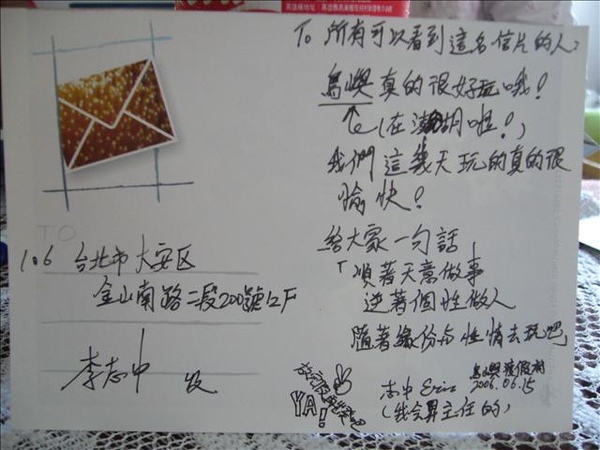 To 所有可以看到這名信片的人：
鳥嶼真的很好玩哦！
(在澎湖啦！)
我們這幾天玩的真的很
愉快！
給大家一句話
「順著天意做事
逆著個性做人
隨著緣份与性情去玩吧」
志中 Eric
鳥嶼渡假村
2006.06.15
(我会算主任的)
YA!
TO
106 台北市大安区
金山南路二段200號12F
李志中 收